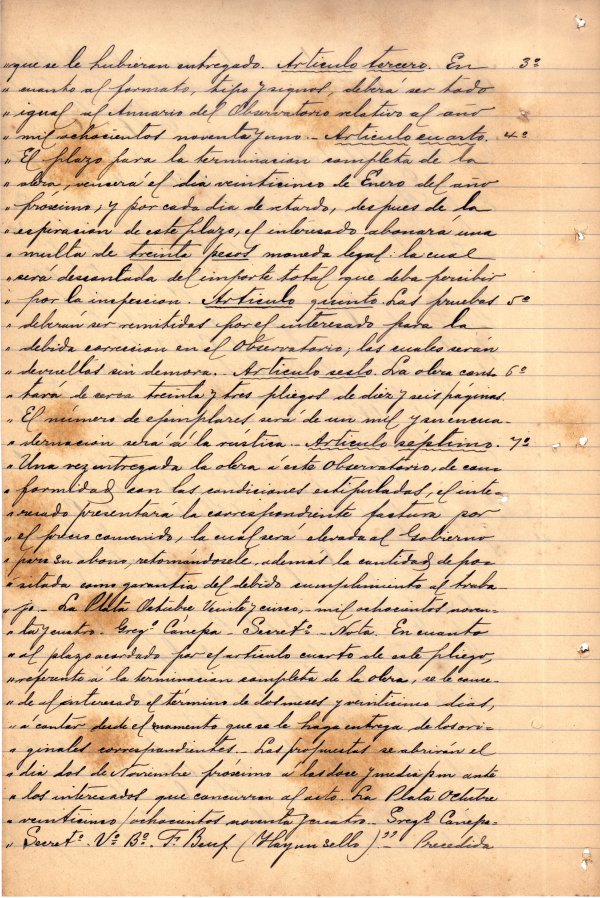 "que se le hubieran entregado. Artículo tercero. En 3º
" cuanto al formato, tipo y signos, deberá ser todo
" igual al Annuario del Observatorio relativo al año
" mil ochocientos noventa y uno.- Artículo cuarto. 4º
" El plazo para la terminacion completa de la
" obra, vencerá el dia veinticinco de Enero del año
" próximo, y por cada dia de retardo, despues de la
" espiracion de este plazo, el interesado abonará una
" multa de treinta pesos moneda legal: la cual
" será descontada del importe total que deba percibir
" por la inspeccion. Artículo quinto. Las pruebas 5º
" deberán ser remitidas por el interesado para la
" debida correccion en el Observatorio, las cuales serán
" devueltas sin demora. Artículo sesto. La obra cons- 6º
" tará de cerca treinta y tres pliegos de diez y seis páginas.
" El número de ejemplares será de un mil y su encua-
" dernacion será á la rústica.- Artículo septimo. 7º
" Una vez entregada la obra á este Observatorio, de con-
" formidad con las condiciones estipuladas, el inte-
" resado presentara la correspondiente factura por
" el precio convenido, la cuál será elevada al Gobierno
" para su abono, retornándosele, además la cantidad depo-
" sitada como garantia del debido cumplimiento al traba-
" jo.- La Plata Octubre Veinte y cinco, mil ochocientos noven-
" ta y cuatro. Gregº Cánepa - Secretº - Nota. En cuanto
" al plazo acordado por el artículo cuarto de este pliego,
" referente á la terminacion completa de la obra, se le conce-
" de al interesado el término de dos meses y veinticinco dias,
" á contar desde el momento que se le haga entrega de los ori-
" ginales correspondientes.- Las propuestas se abrirán el
" dia dos de Noviembre próximo á las doce y media p m ante
" los interesados que concurran al acto. La Plata Octubre
" veinticinco / ochocientos noventa y cuatro. Gregº Canepa-
" Secretº. Vº Bº. Fº Beuf. (Hay un sello)"- Precedida